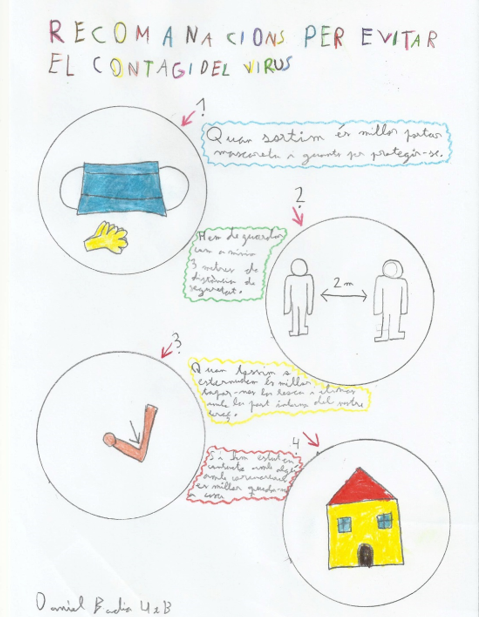 RECOMANACIONS PER EVITAR
EL CONTAGI DEL VIRUS
1
Quan sortim és millor portar
mascareta i guants per protegir-se.
2
Hem de guardar
com a mínim
3 metres de
distància de
seguretat.
2 m
3
Quan tossim o
esternudem és millor
tapar-nos la boca
amb la part interna del nostre
4
Si hem estat en
contacte amb algú
amb coronavirus
és millor
casa
Daniel Badia 4t B